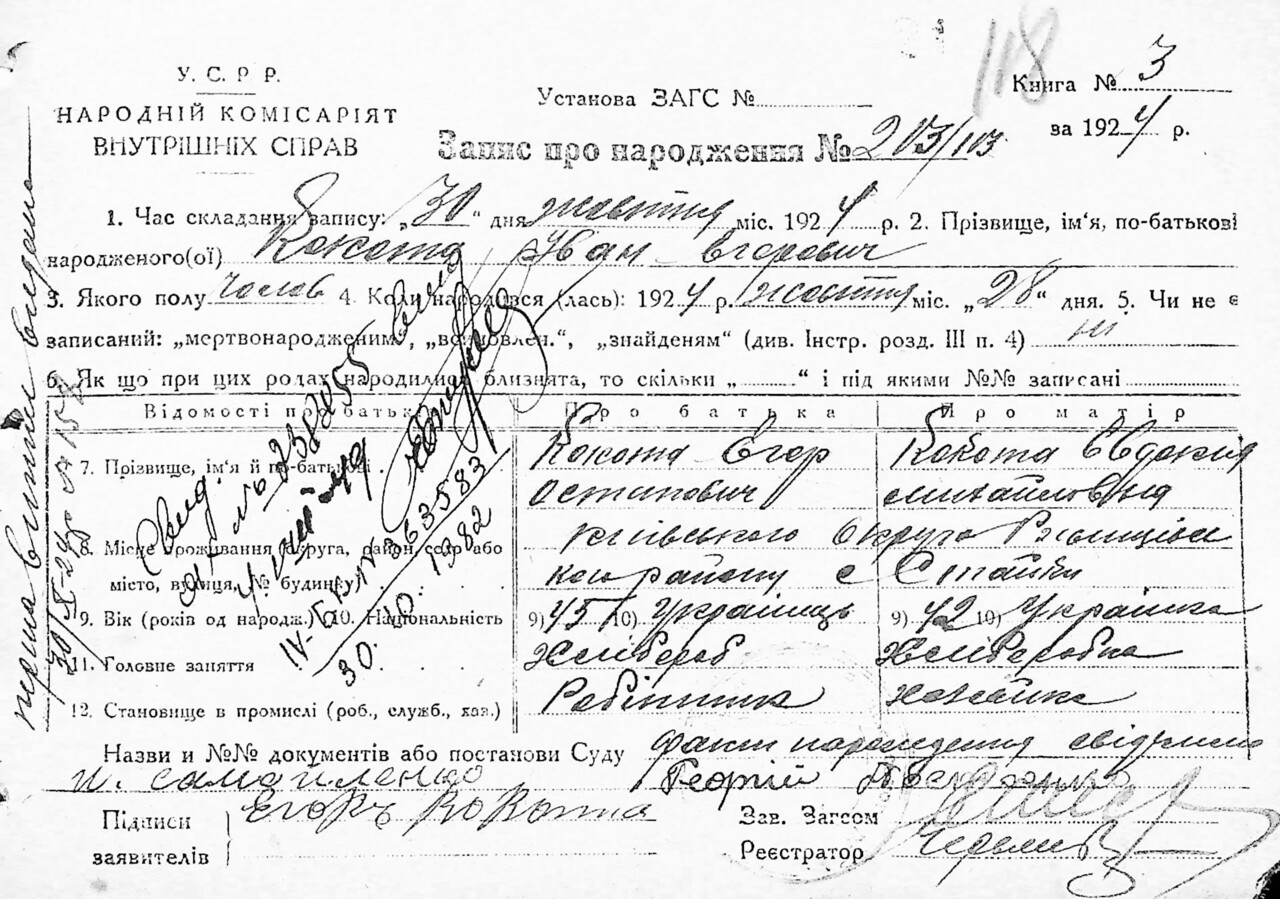 118
У. С. Р Р.
НАРОДНІЙ КОМІСАРІЯТ
ВНУТРІШНІХ СПРАВ
Установа ЗАГС №
Книга № 3
за 1924 р.
Запис про народження № 203/103
1. Час складання запису: „30“ дня жовтня міс. 1924 р. 2. Прізвище, ім'я, по-батькові
народженого(ої) Кокота Іван Єгорович
3. Якого полу чолов 4. Коли народився (лась): 1924 р. жовтня міс. „28“ дня. 5. Чи не є
записаний: „мертвонародженим“, „встановлен.“, „знайденям“ (див. Інстр. розд. III п. 4) ні
6. Як що при цих родах народилися близнята, то скільки „ “ і під якими №№ записані
Відомості про батьків Про батька Про матір
7. Прізвище, ім'я й по-батькові Кокота Єгор Кокота Євдокия
Остапович михайловна
8. Місце проживання (округа, район, село або київського Округа Ржищівс
місто, вулиця, № будинку) кого району с Стайки
9. Вік (років од народж.) 10. Національність 9) 45 10) Українець 9) 42 10) Українка
11. Головне заняття Хлібороб Хліборобка
12. Становище в промислі (роб., служб., хаз.) Робітник хазайка
Назви и №№ документів або постанови Суду факт народження свідчили
и. самойленко Георгій
Підписи
заявителів
Егоръ Кокота
Зав. Загсом
Реєстратор
перша випис видана
30/X-24 р № 158
Свид.
№ 238455
IV-БК № 3635831
30. 10 1982